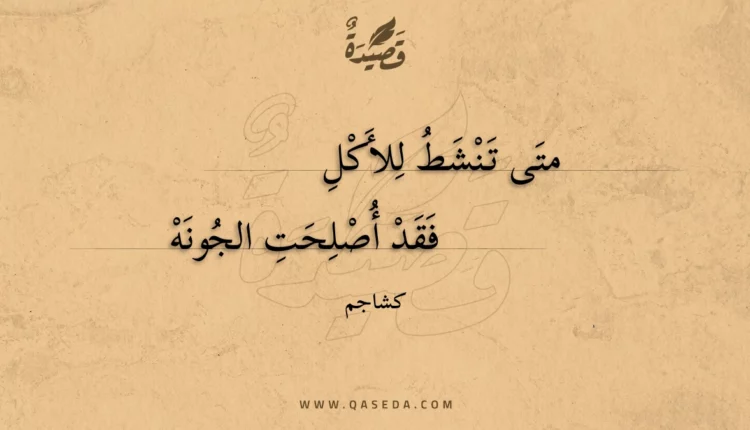 قَصِيدَةٌ
متَى تَنْشَطُ لِلأَكْلِ
فَقَدْ أُصْلِحَتِ الجُونَهْ
كشاجم
WWW.QASEDA.COM